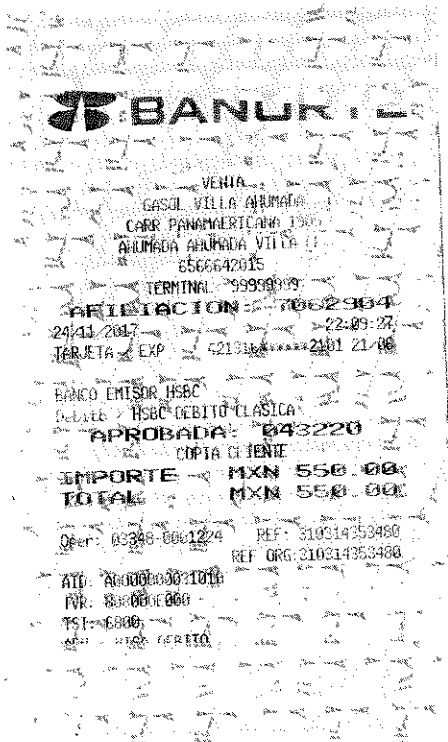 BANORTE
VENTA
GASOL VILLA AHUMADA
CARR PANAMAERICANA
AHUMADA AHUMADA VILLA
6566642015
TERMINAL: 99999999
AFILIACION: 7062904
24/11/2017 22:09:27
TARJETA / EXP 2101 21/06
BANCO EMISOR HSBC
HSBC DEBITO CLASICA
APROBADA: 043220
COPIA CLIENTE
IMPORTE MXN 550.00
TOTAL MXN 550.00
Oper: 03348-0001224 REF: 310314353480
REF ORG:310314353480
AID: A0000000031010
TVR:
TSI: 6800
VISA DEBITO